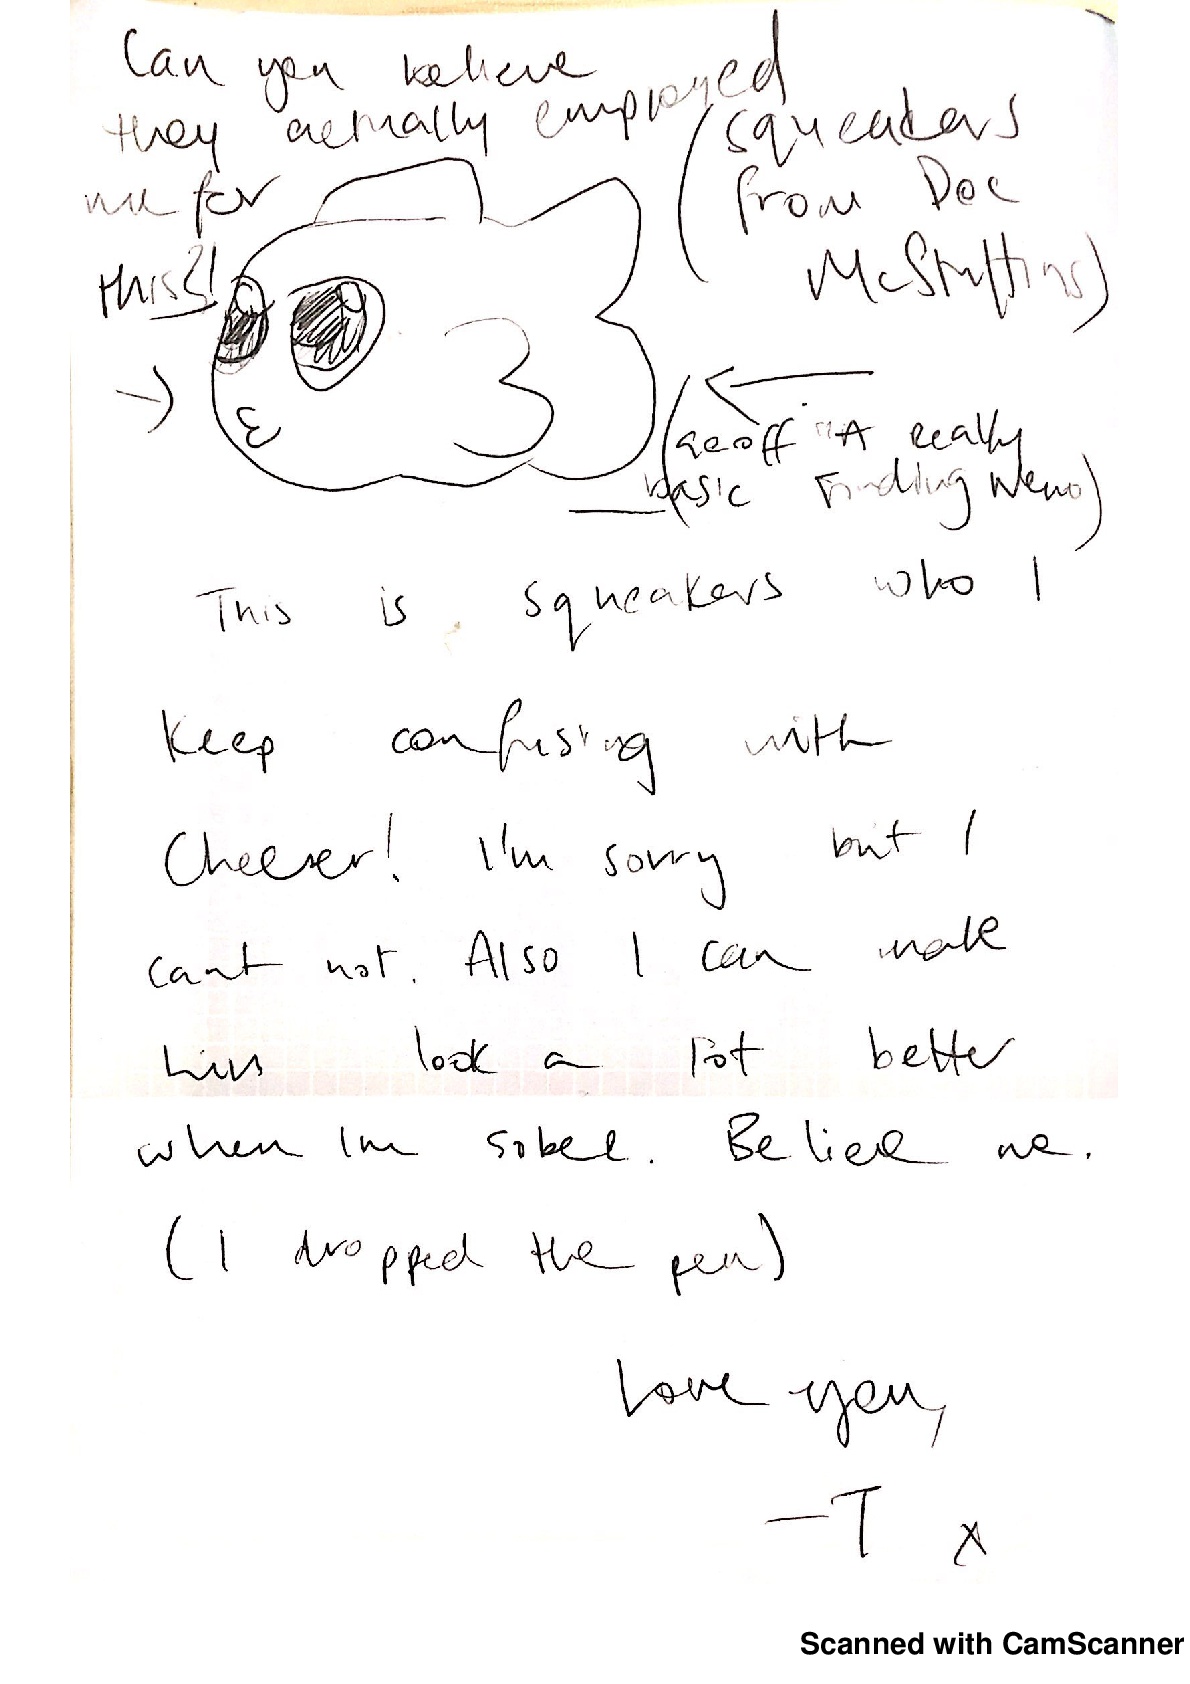 Can you believe
they actually employed
me for
this?!
(squeakers
from Doc
McStuffins)
(Geoff "A really
basic Finding Nemo)
This is squeakers who I
Keep confusing with
Cheezer! I'm sorry but I
cant not. Also I can make
him look a lot better
when Im sober. Believe me.
(I dropped the pen)
Love you,
-T x
Scanned with CamScanner